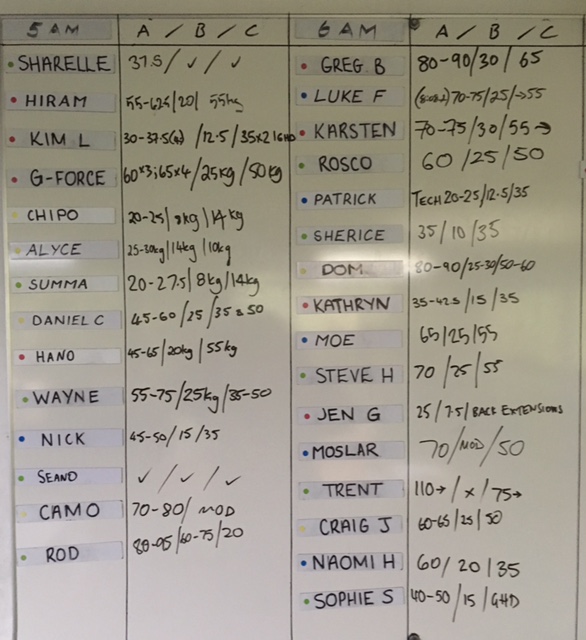 5 AM A / B / C
SHARELLE 37.5 / ✓ / ✓
HIRAM 55-62.5/20/ 55kg
KIM L 30-37.5(4) / 12.5 / 35x2 1GHD
G-FORCE 60x3; 65x4 / 25kg / 50kg
CHIPO 20-25 / 8kg / 14kg
ALYCE 25-30kg / 14kg / 10kg
SUMMA 20-27.5 / 8kg / 14kg
DANIEL C 45-60 / 25 / 35 50
HANO 45-65 / 20kg / 55kg
WAYNE 55-75 / 25kg / 35-50
NICK 45-50 / 15 / 35
SEANO ✓ / ✓ / ✓
CAMO 70-80 / MOD
ROD 80-95 / 60-75 / 20
6 AM A / B / C
GREG B 80-90 / 30 / 65
LUKE F 70-75 / 25 / →55
KARSTEN 70-75 / 30 / 55→
ROSCO 60 / 25 / 50
PATRICK TECH 20-25 / 12.5 / 35
SHERICE 35 / 10 / 35
DOM 80-90 / 25-30 / 50-60
KATHRYN 35-42.5 / 15 / 35
MOE 65 / 25 / 55
STEVE H 70 / 25 / 55
JEN G 25 / 7.5 / BACK EXTENSIONS
MOSLAR 70 / MOD / 50
TRENT 110→ / x / 75→
CRAIG J 60-65 / 25 / 50
NAOMI H 60 / 20 / 35
SOPHIE S 40-50 / 15 / GHD